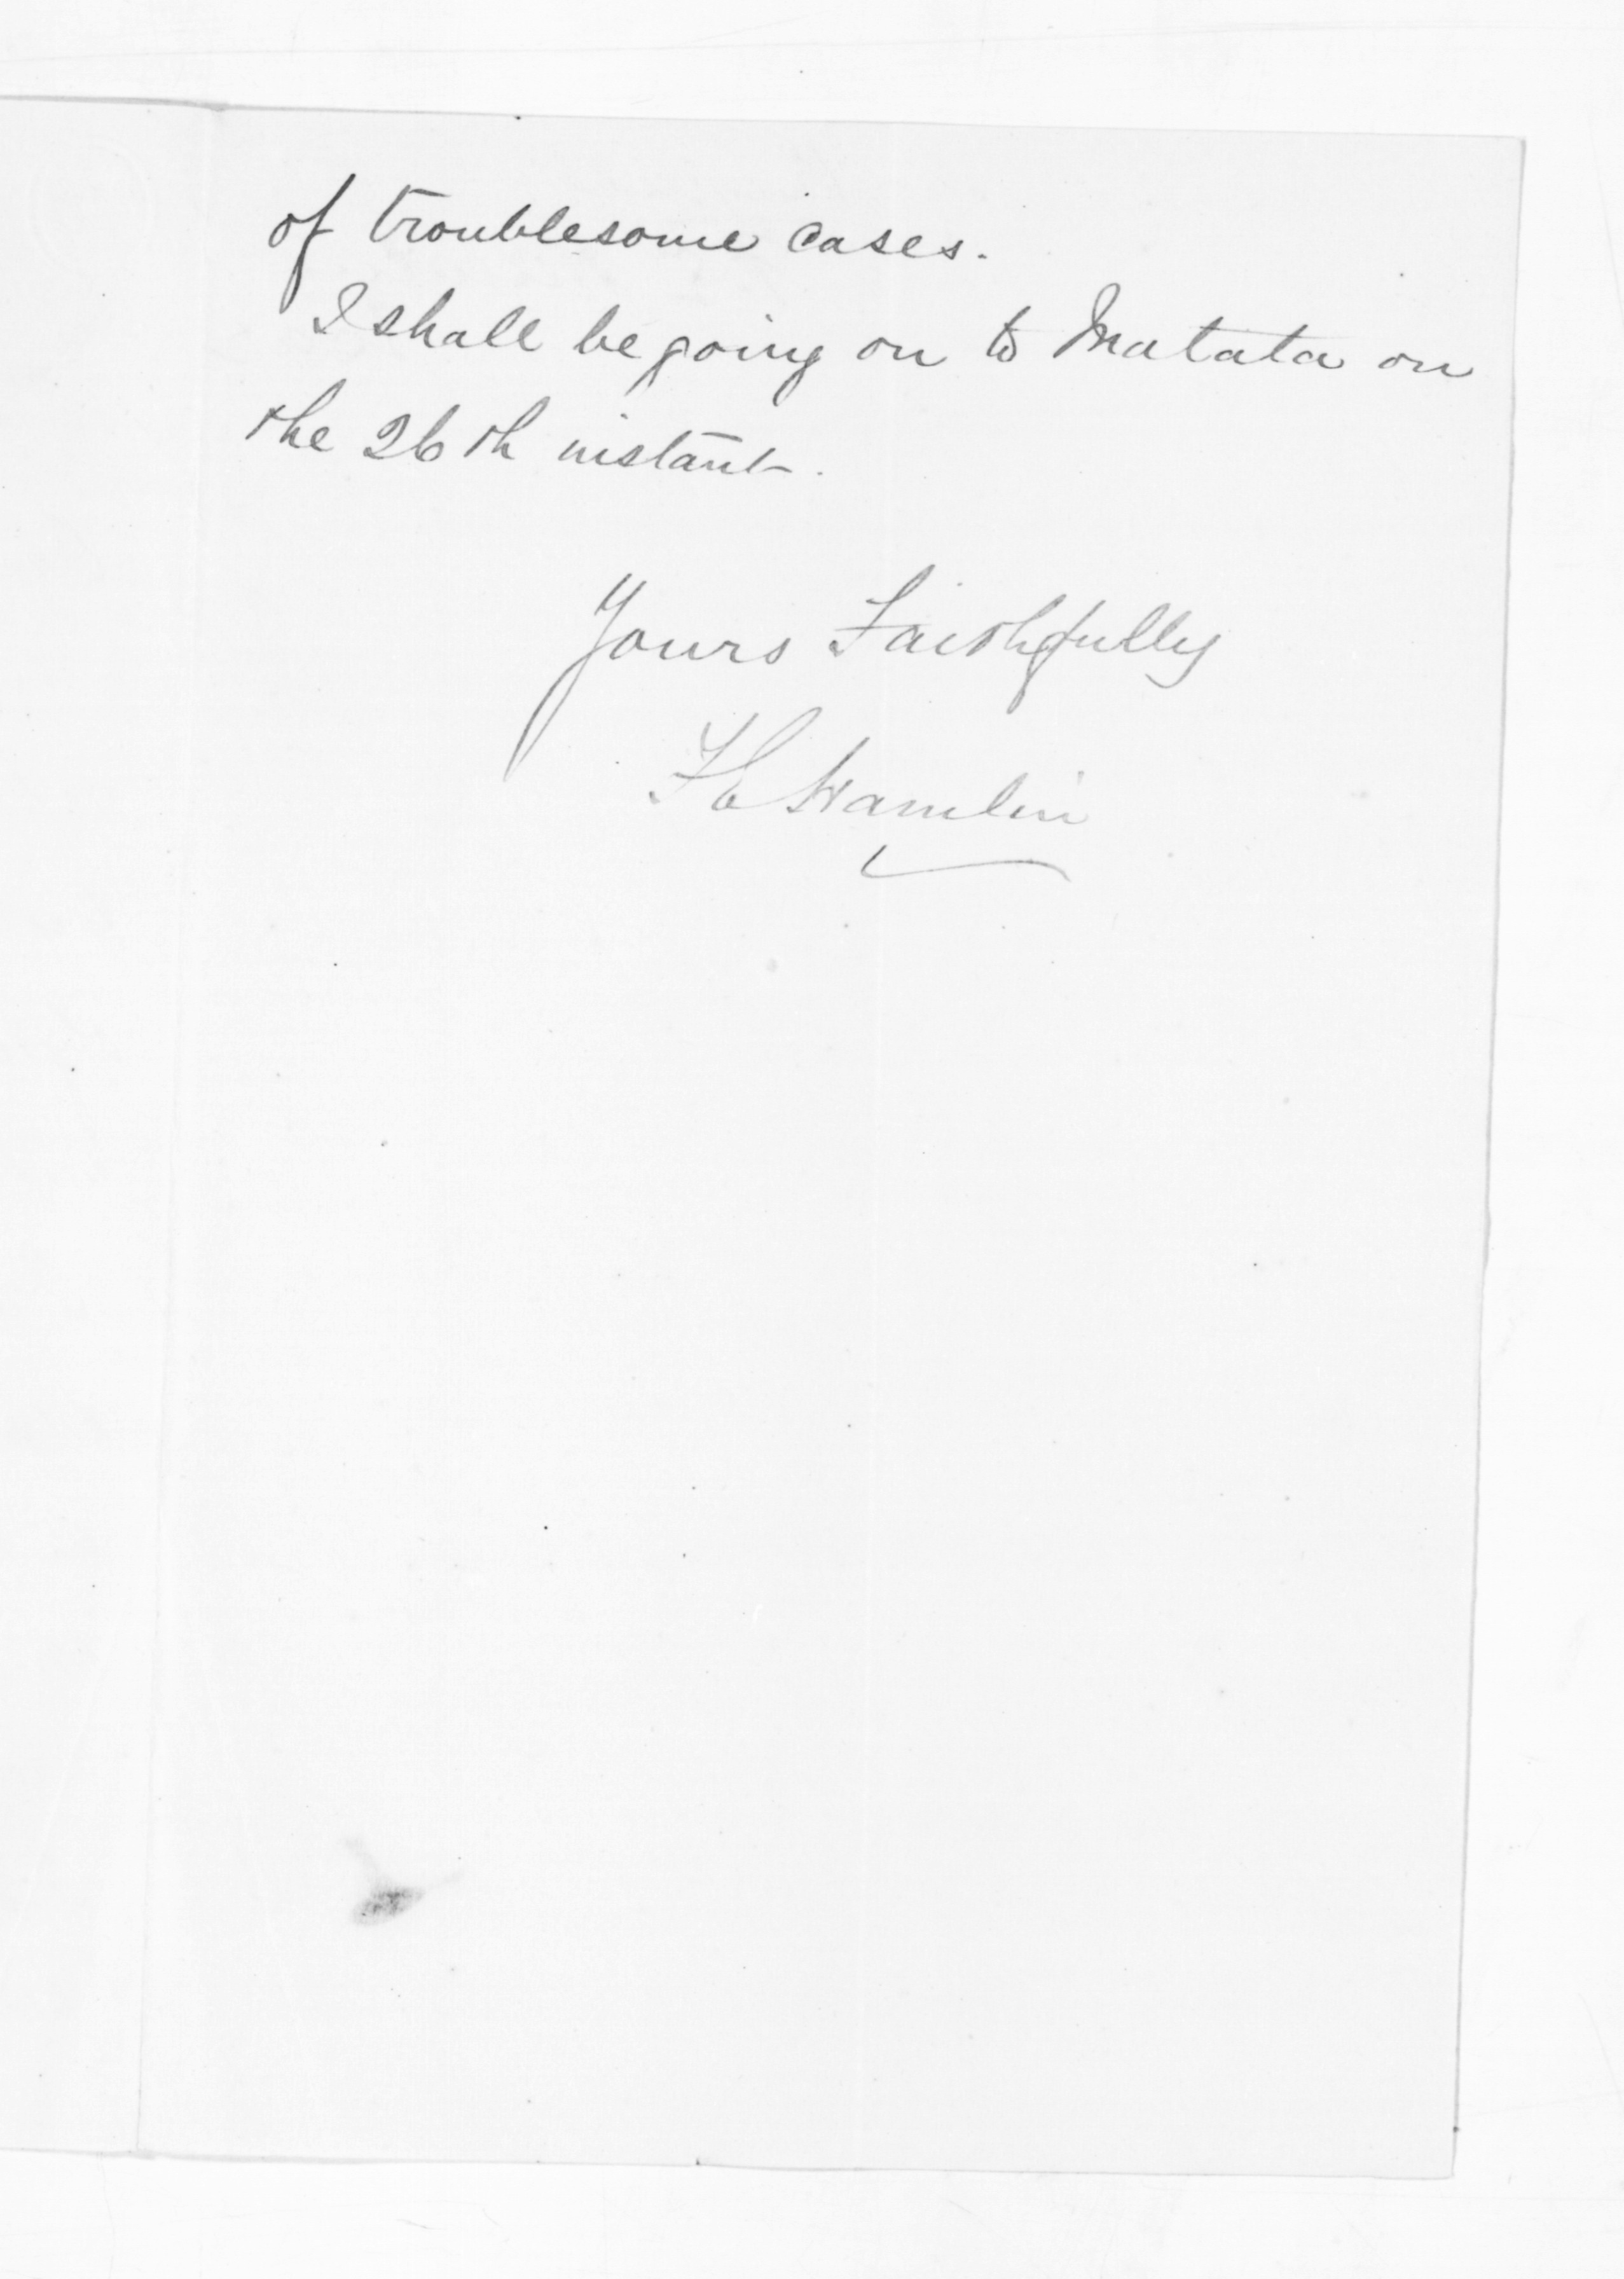 of troublesome cases.
I shall be going on to Matata on
the 26th instant.
Yours Faithfully
F E Hamlin